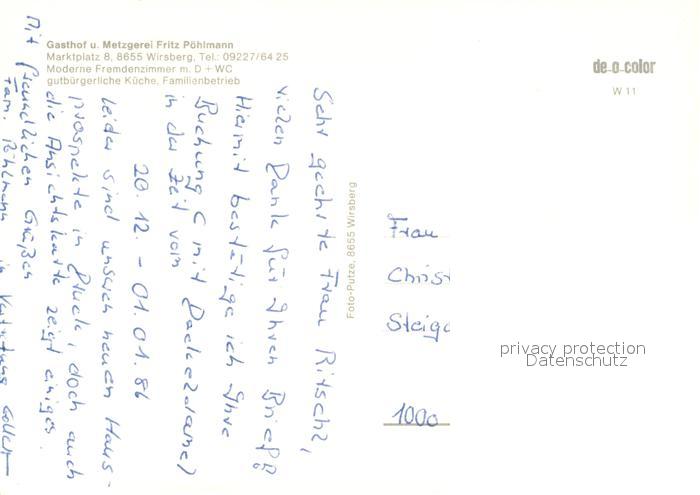 Gasthof u. Metzgerei Fritz Pöhlmann
Marktplatz 8, 8655 Wirsberg, Tel.: 09227/64 25
Moderne Fremdenzimmer m. D + WC
gutbürgerliche Küche, Familienbetrieb
de-o-color
W 11
Foto-Putze, 8655 Wirsberg
Sehr geehrte Frau Ritschz,
vielen Dank für Ihren Brief!
Hiermit bestätige ich Ihre
Buchung (mit Dackeldame)
in der Zeit vom
20. 12. - 01. 01. 86
leider sind unsere neuen Haus-
prospekte in Druck, doch auch
die Ansichtskarte zeigt einiges.
Mit freundlichen Grüßen
Fam. Pöhlmann in Vertretung
Frau
Christ
Steiga
1000
privacy protection
Datenschutz